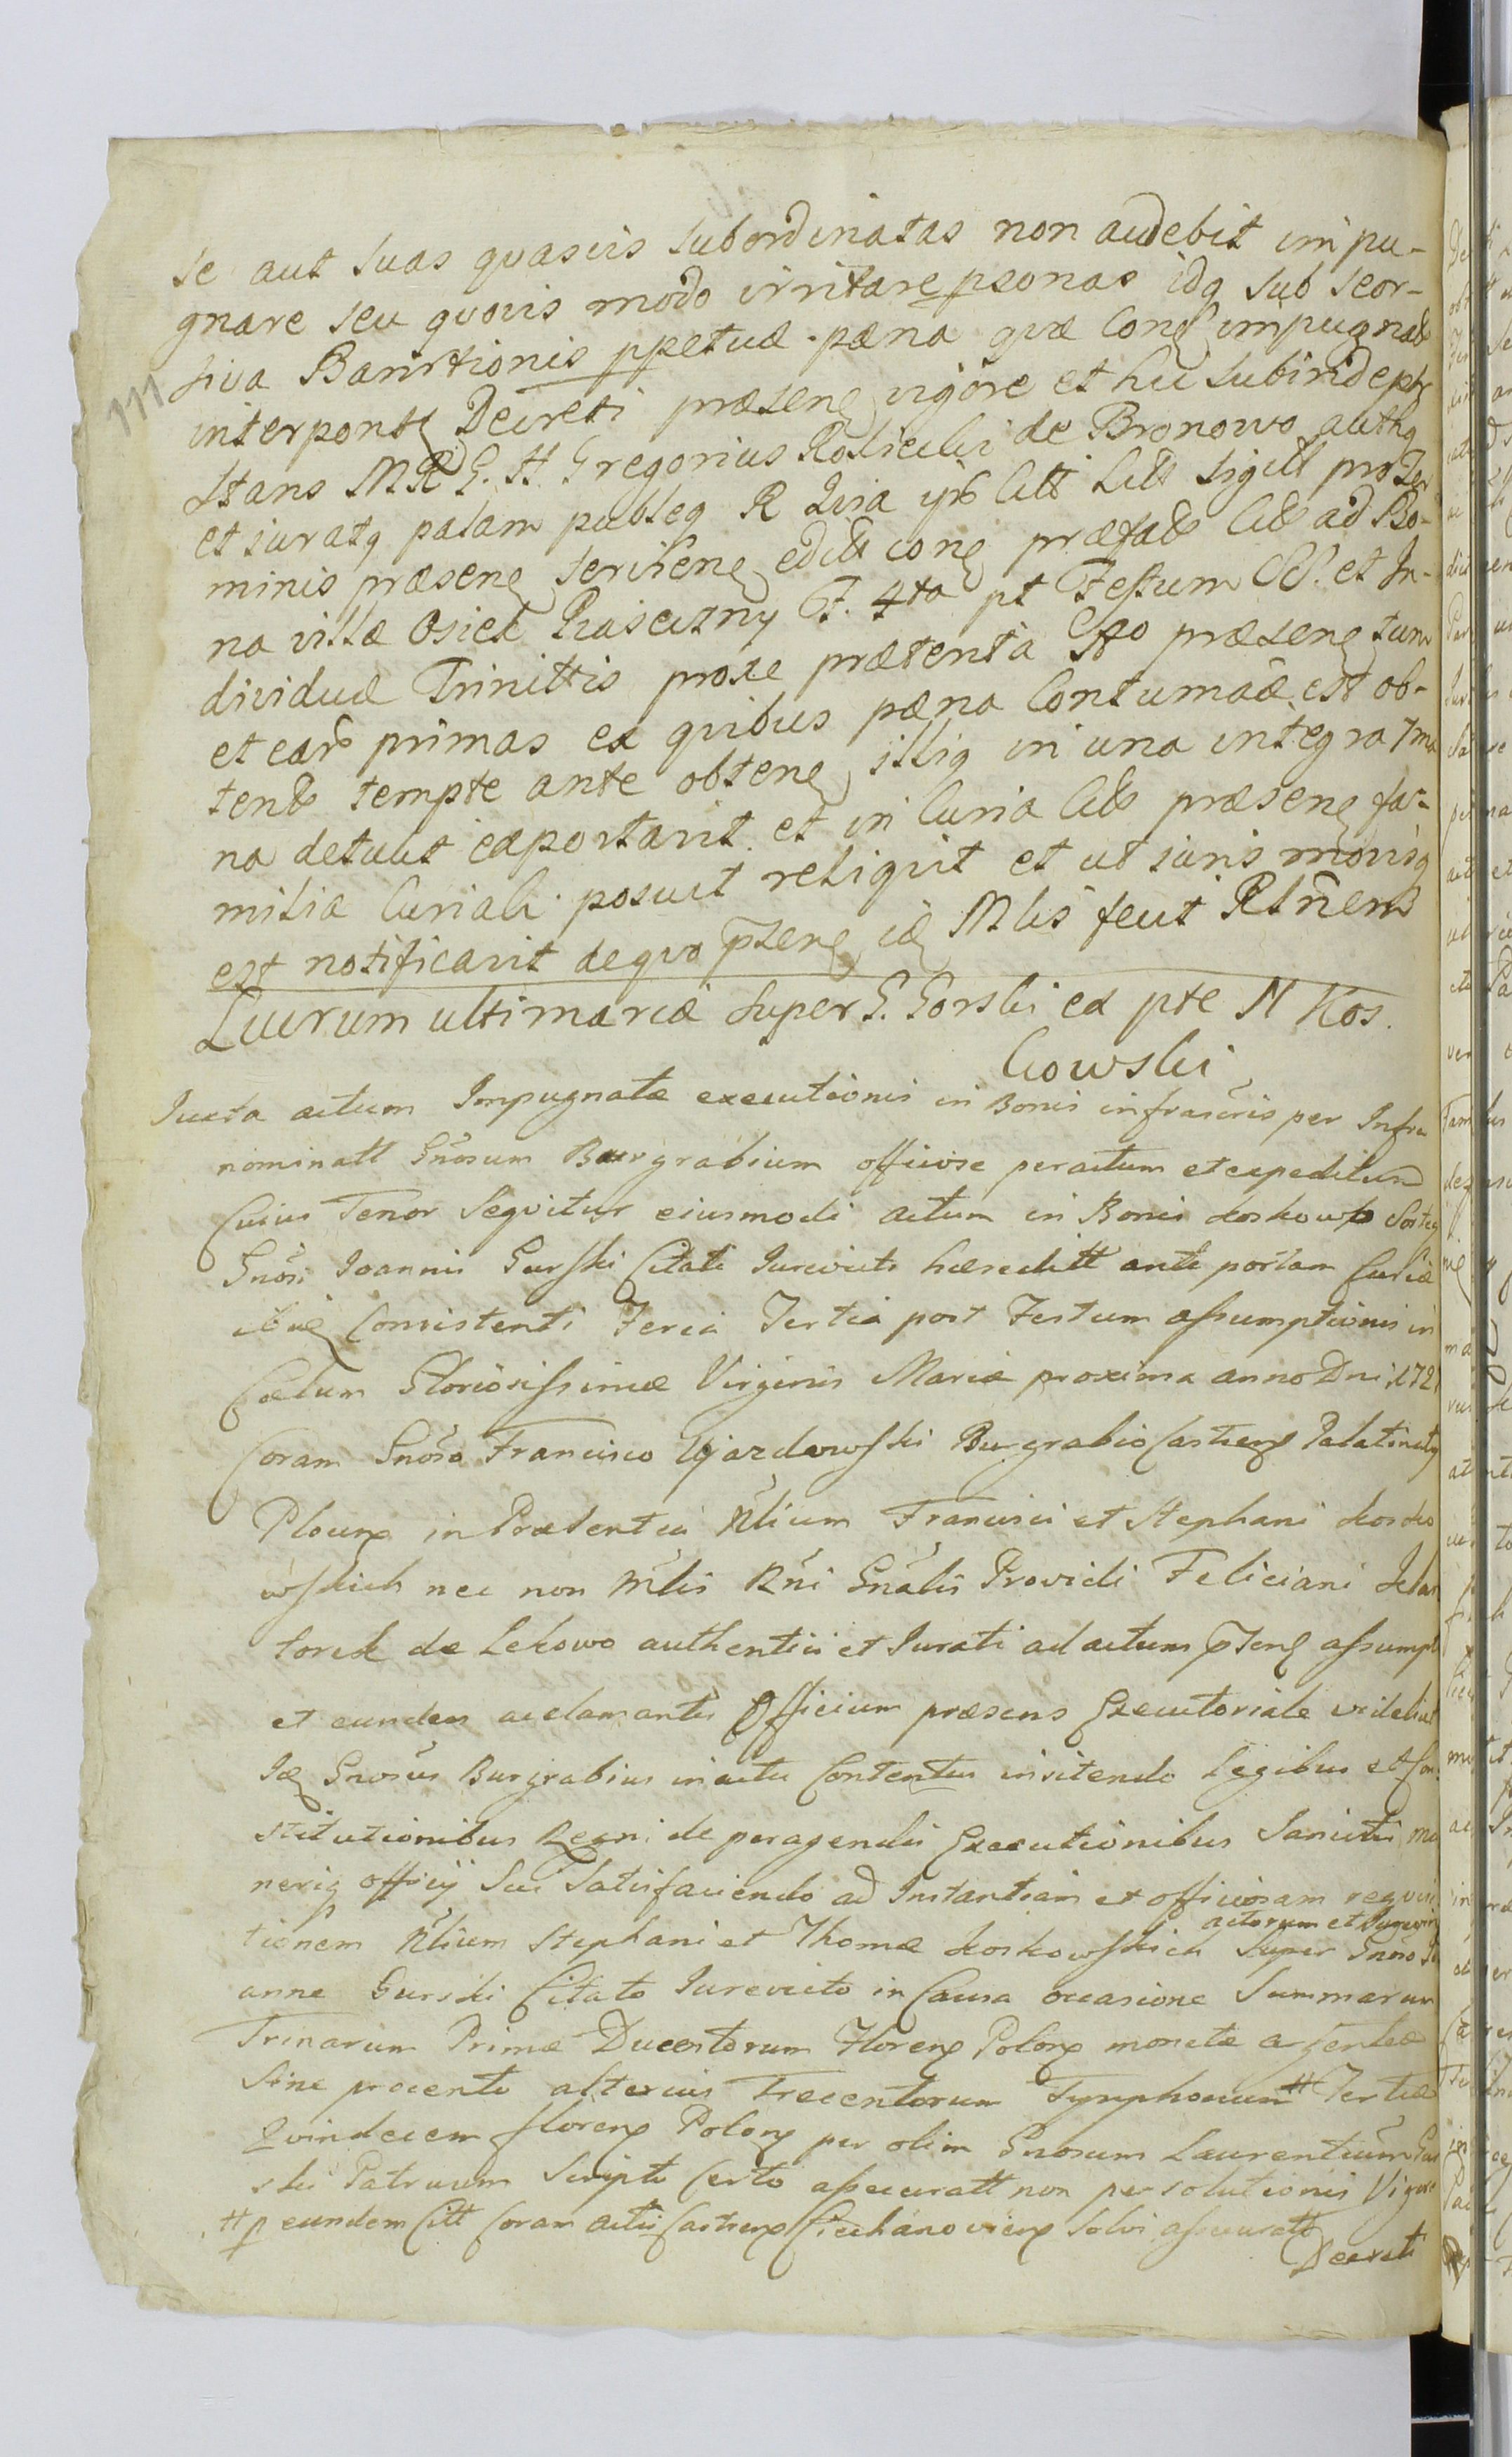 se aut suas quasvis subordinatas non audebit impu-
gnare seu quovis modo irritare psonas idq sub seor-
siva Bannitionis ppetuæ pæna quæ Conq impugnab
interpontq Decreti præsenq vigore et hic subinde
stans MR G. H. Gregorius de Bronowo authq
et iuratq palam publeq R Litt sigill pro Ter
minis præsenq editt conq præfatt ad Bo-
na villæ Osiek F. 4ta pt Festum SS. et In-
dividuæ Trinittis proxe præterita præsenq tum
et eaR primas ex quibus pæna Contumaæ est ob-
tenta tempte ante obtenq illiq in una integra
na detulit exportavit et in Curia præsenq fa-
miliæ Curiali posuit reliquit et ut iuris morisq
est notificavit de quo psenq iq Mlis fecit Rlnem
111
Lucrum ultimariæ super G. Gorski ex pte N Kos.
kowski
Juxta actum Impugnatæ executionis in Bonis infrascris per Infra
nominatt Gnosum Burgrabium officiose peractum et expeditum
Cuius Tenor Sequitur eiusmodi actum in Bonis Koskowo
Gnosi Joannis Gurski Citati Jurevicti hæreditt ante portam Curiæ
ibiq Consistenti Feria Tertia post Festum assumptionis in
Cœlum Gloriosissimæ Virginis Mariæ proxima anno Dni 1721
Coram Gnoso Francisco Ujazdowski Burgrabio Castrenq Palatinatq
Plocenq in Præsentia Nlium Francisci et Stephani Kosko
wskich nec non Mlis Rni Gnalis Providi Feliciani
de Lekowo authentici et Jurati ad actum psenq assumpt
et eundem acclamantis Officium præsens Executoriale videlicet
Iq Gnosus Burgrabius in actu Contentus insitendo Legibus et Con
stitutionibus Regni de peragendis Executionibus Sancitis mu
neriq officij Sui Satisfaciendo ad Instantiam et officiosam requisi
actorum et
tionem Nlium Stephani et Thomæ Koskowskich Super Gnoso Jo
anne Gurski Citato Jurevicto in Causa occasione Summarum
Trinarum Primæ Ducentorum Florenq Polonq monetæ argenteæ
Sine procento alterius Trecentorum Tymphonum # Tertiæ
Quindecem florenq Polonq per olim Gnosum Laurentium Gur
ski Patruum Scripto Certo assecuratt non persolutionis Vigore
# p eundem Citt Coram actis Castrenq Ciechanoviensq Solvi assecuratt
Decreti